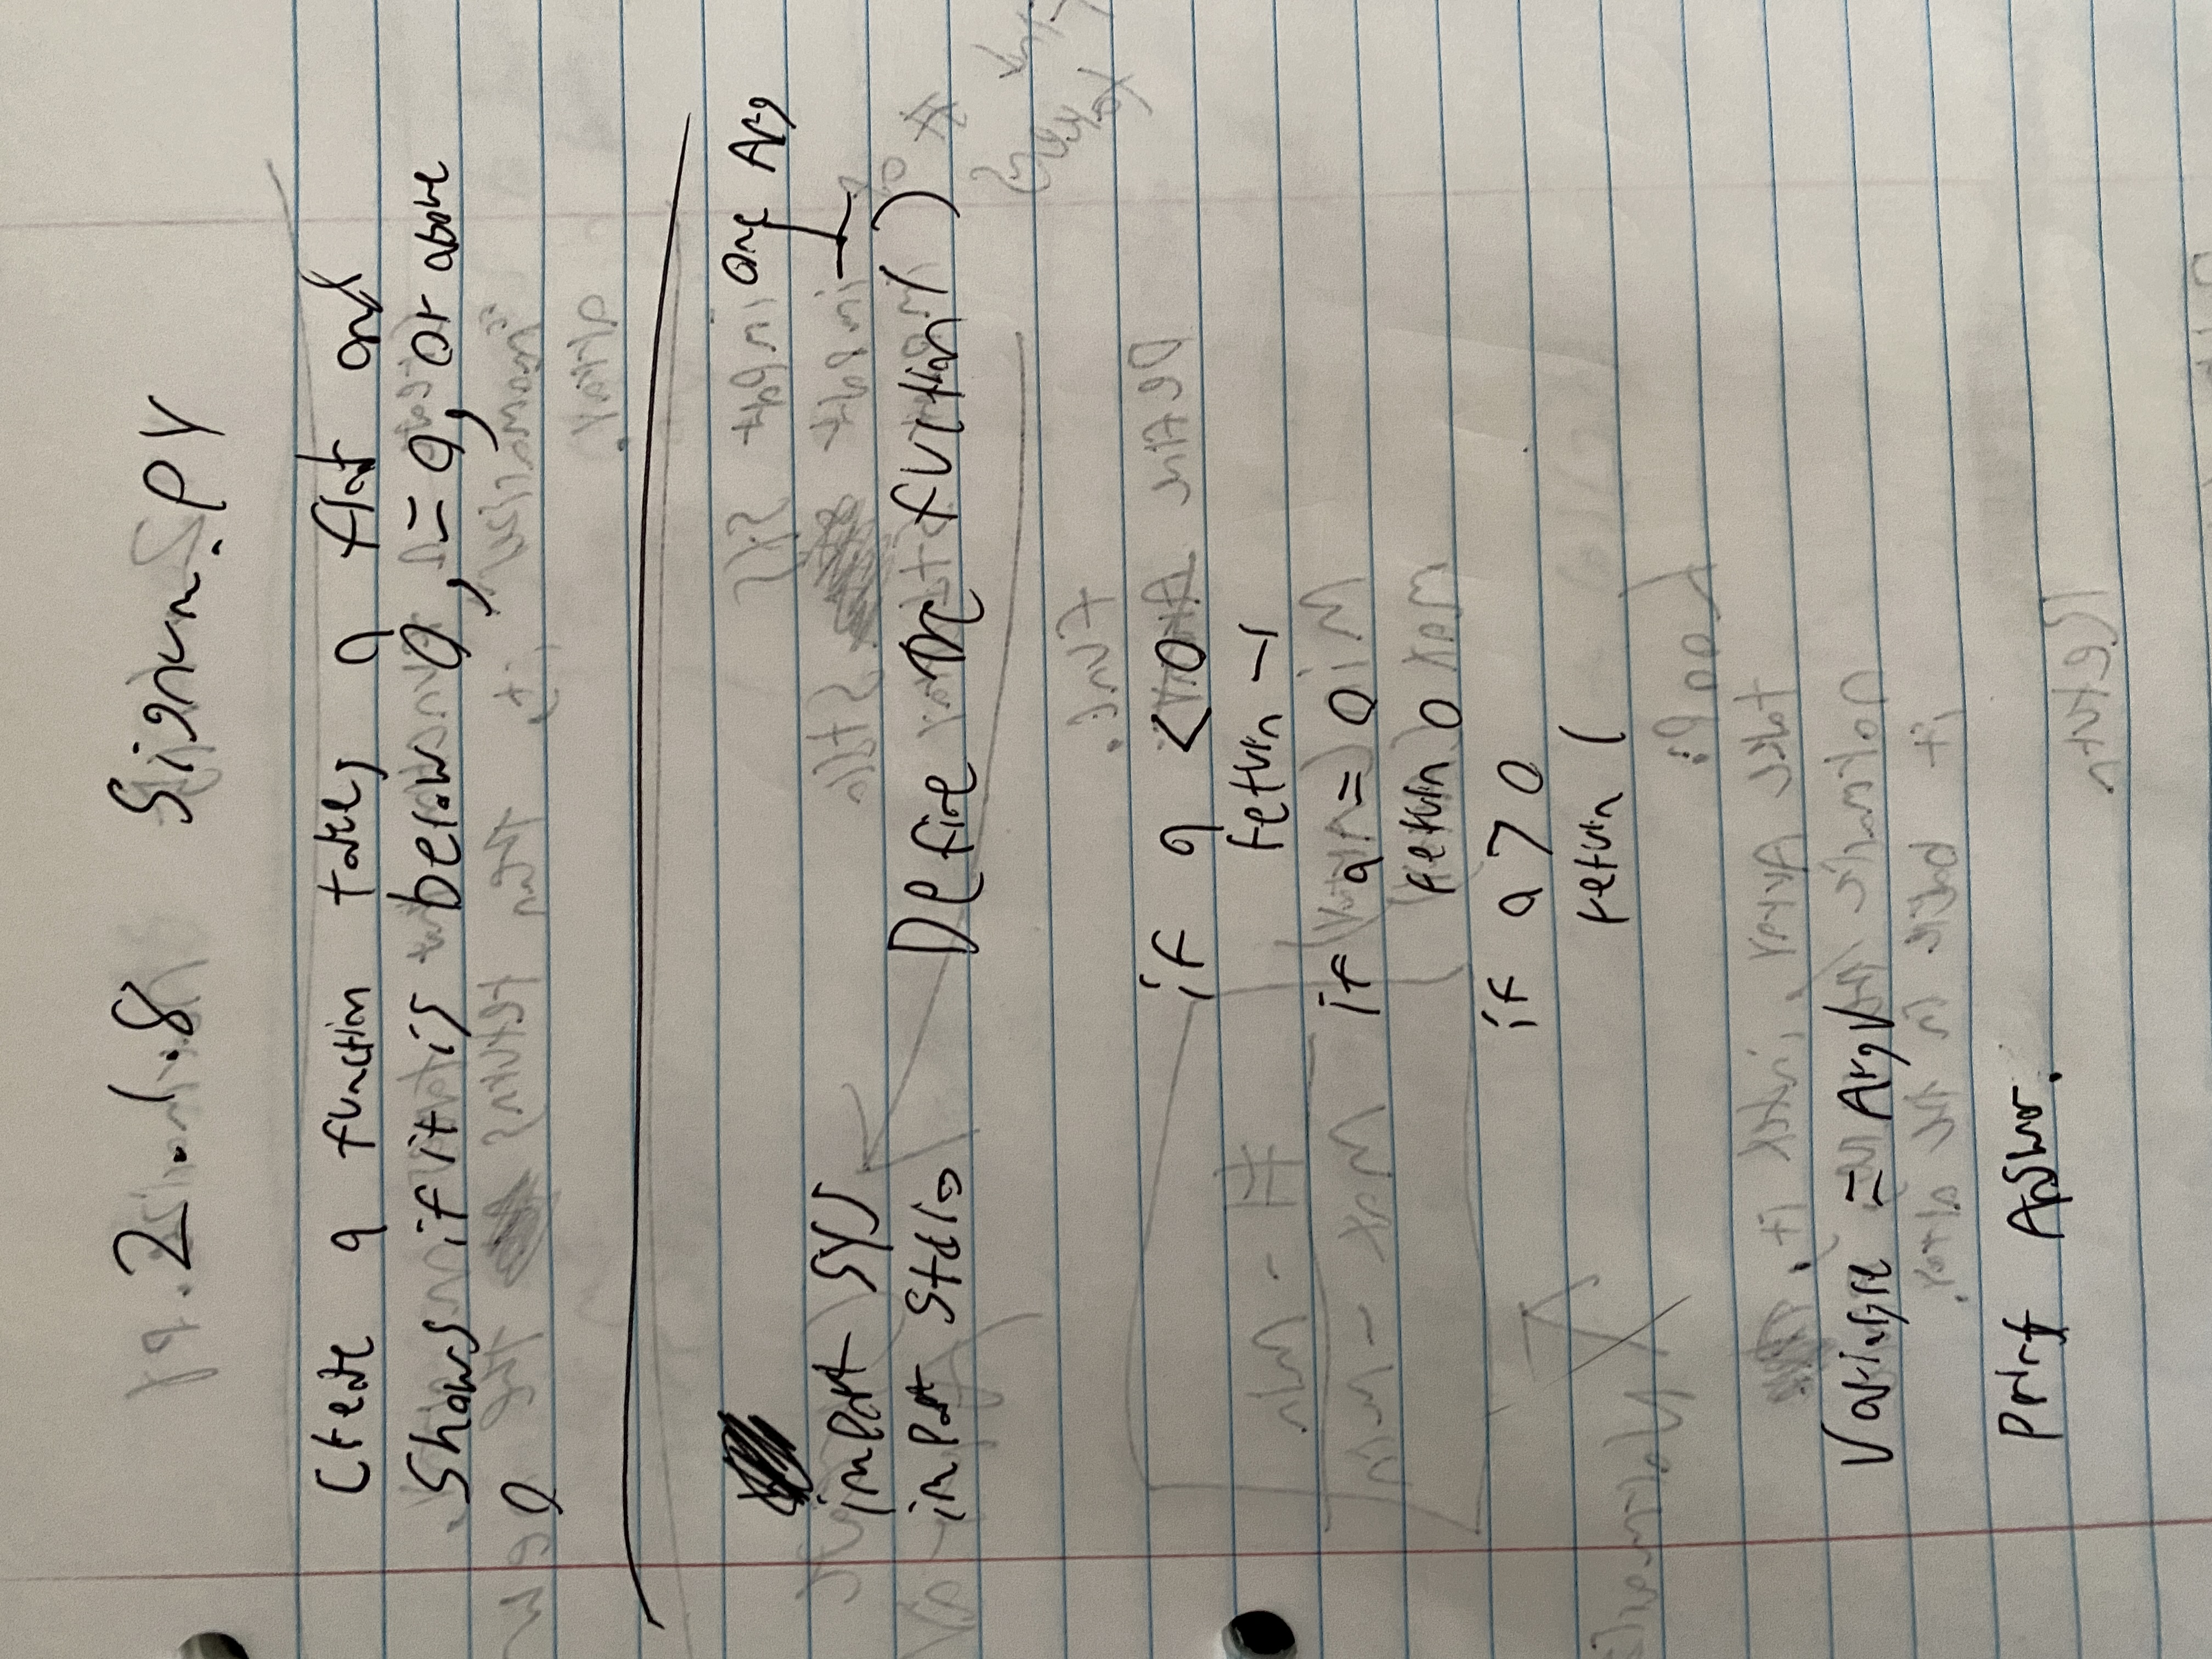 2.1.8 Signum.py
Create a function takes a float and
Shows if it is below 0, = 0, or above
0
one Arg
import sys
import stdio Define the fuction( )
if a < 0
return -1
if a = 0
return 0
if a > 0
return 1
Variable = Argv
Print Answer.